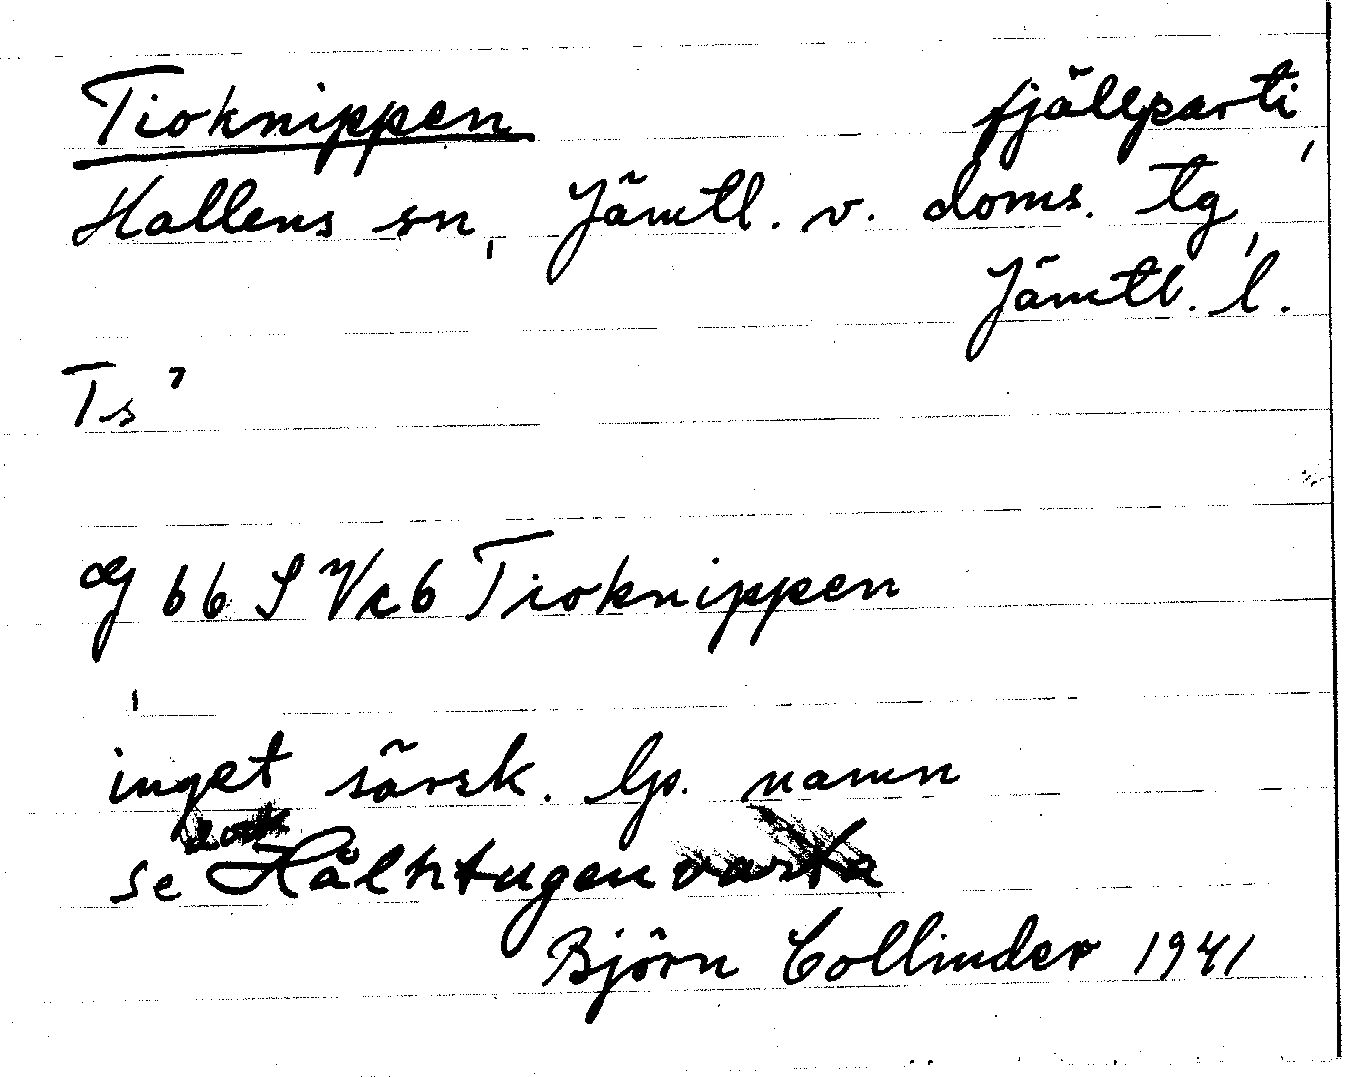 Tioknippen fjällparti,
Hallens sn, Jämtl. v. doms. tg,
Jämtl. l.
Ts
66 S Vcb Tioknippen
inget särsk. lp. namn
dock
se Hålhtugen
Björn Collinder 1941